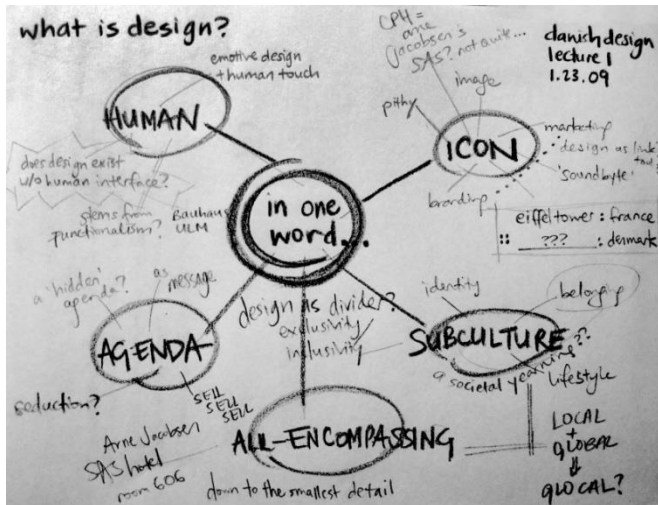 what is design?
danish design
lecture 1
1.23.09
CPH =
arne
jacobsen's
SAS? not quite...
emotive design
+ human touch
HUMAN
does design exist
w/o human interface?
stems from
functionalism?
Bauhaus
ULM
image
pithy
ICON
marketing
design as link
'soundbyte'
branding
eiffel tower : france
:: ??? : denmark
in one
word...
a 'hidden'
agenda?
as
message
AGENDA
seduction?
SELL
SELL
SELL
design as divider?
exclusivity
inclusivity
identity
belonging
SUBCULTURE
a societal yearning?
lifestyle
Arne Jacobsen
SAS hotel
room 606
ALL-ENCOMPASSING
down to the smallest detail
LOCAL
+
GLOBAL
⇓
GLOCAL?